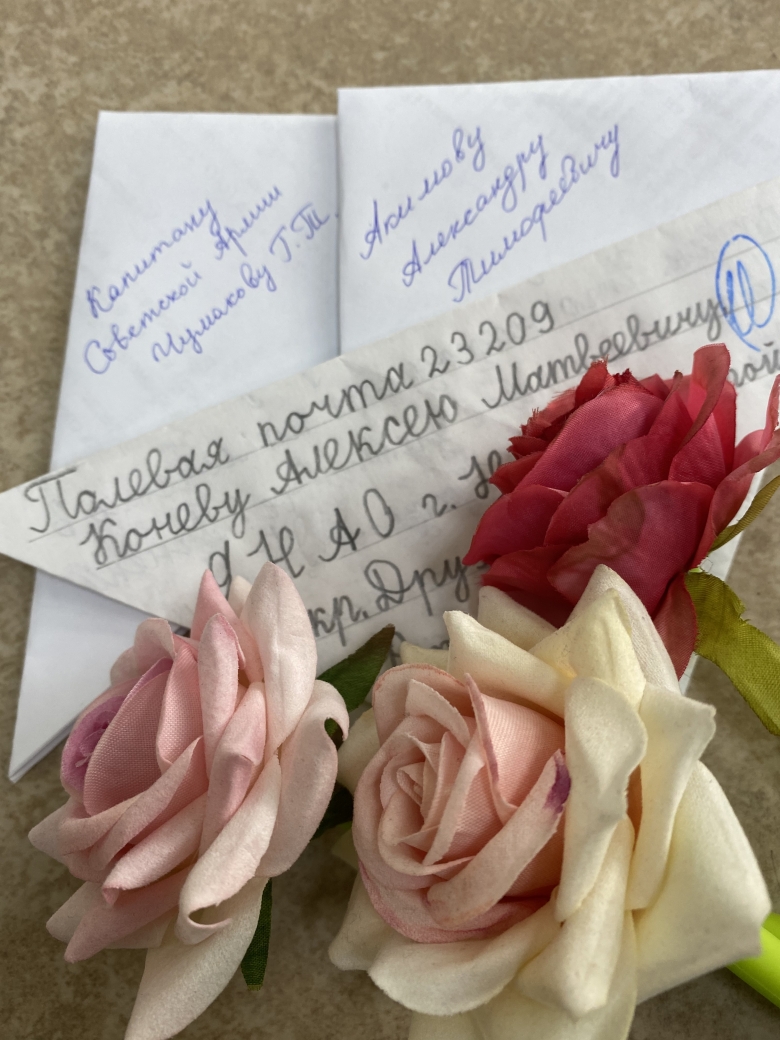 Капитану
Советской Армии
Чумакову Г.Т.
Акимову
Александру
Тимофеевичу
Полевая почта 23209
Коневу Алексею Матвеевичу
ЯНАО г. Н
кр. Друж